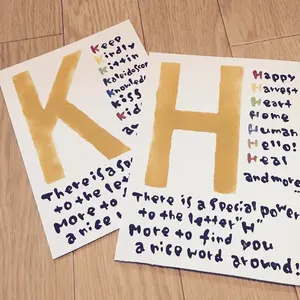 K
Keep
Kindly
Kittin
Kaleidoscop
Knowled
Kiss
Kid
and
There is a spe
to the letter
More to f
a nice w
H
Happy
Harvest
Heart
Home
Human
Hello!
Heal
and more..
There is a special power
to the letter "H"
More to find you
a nice word around!